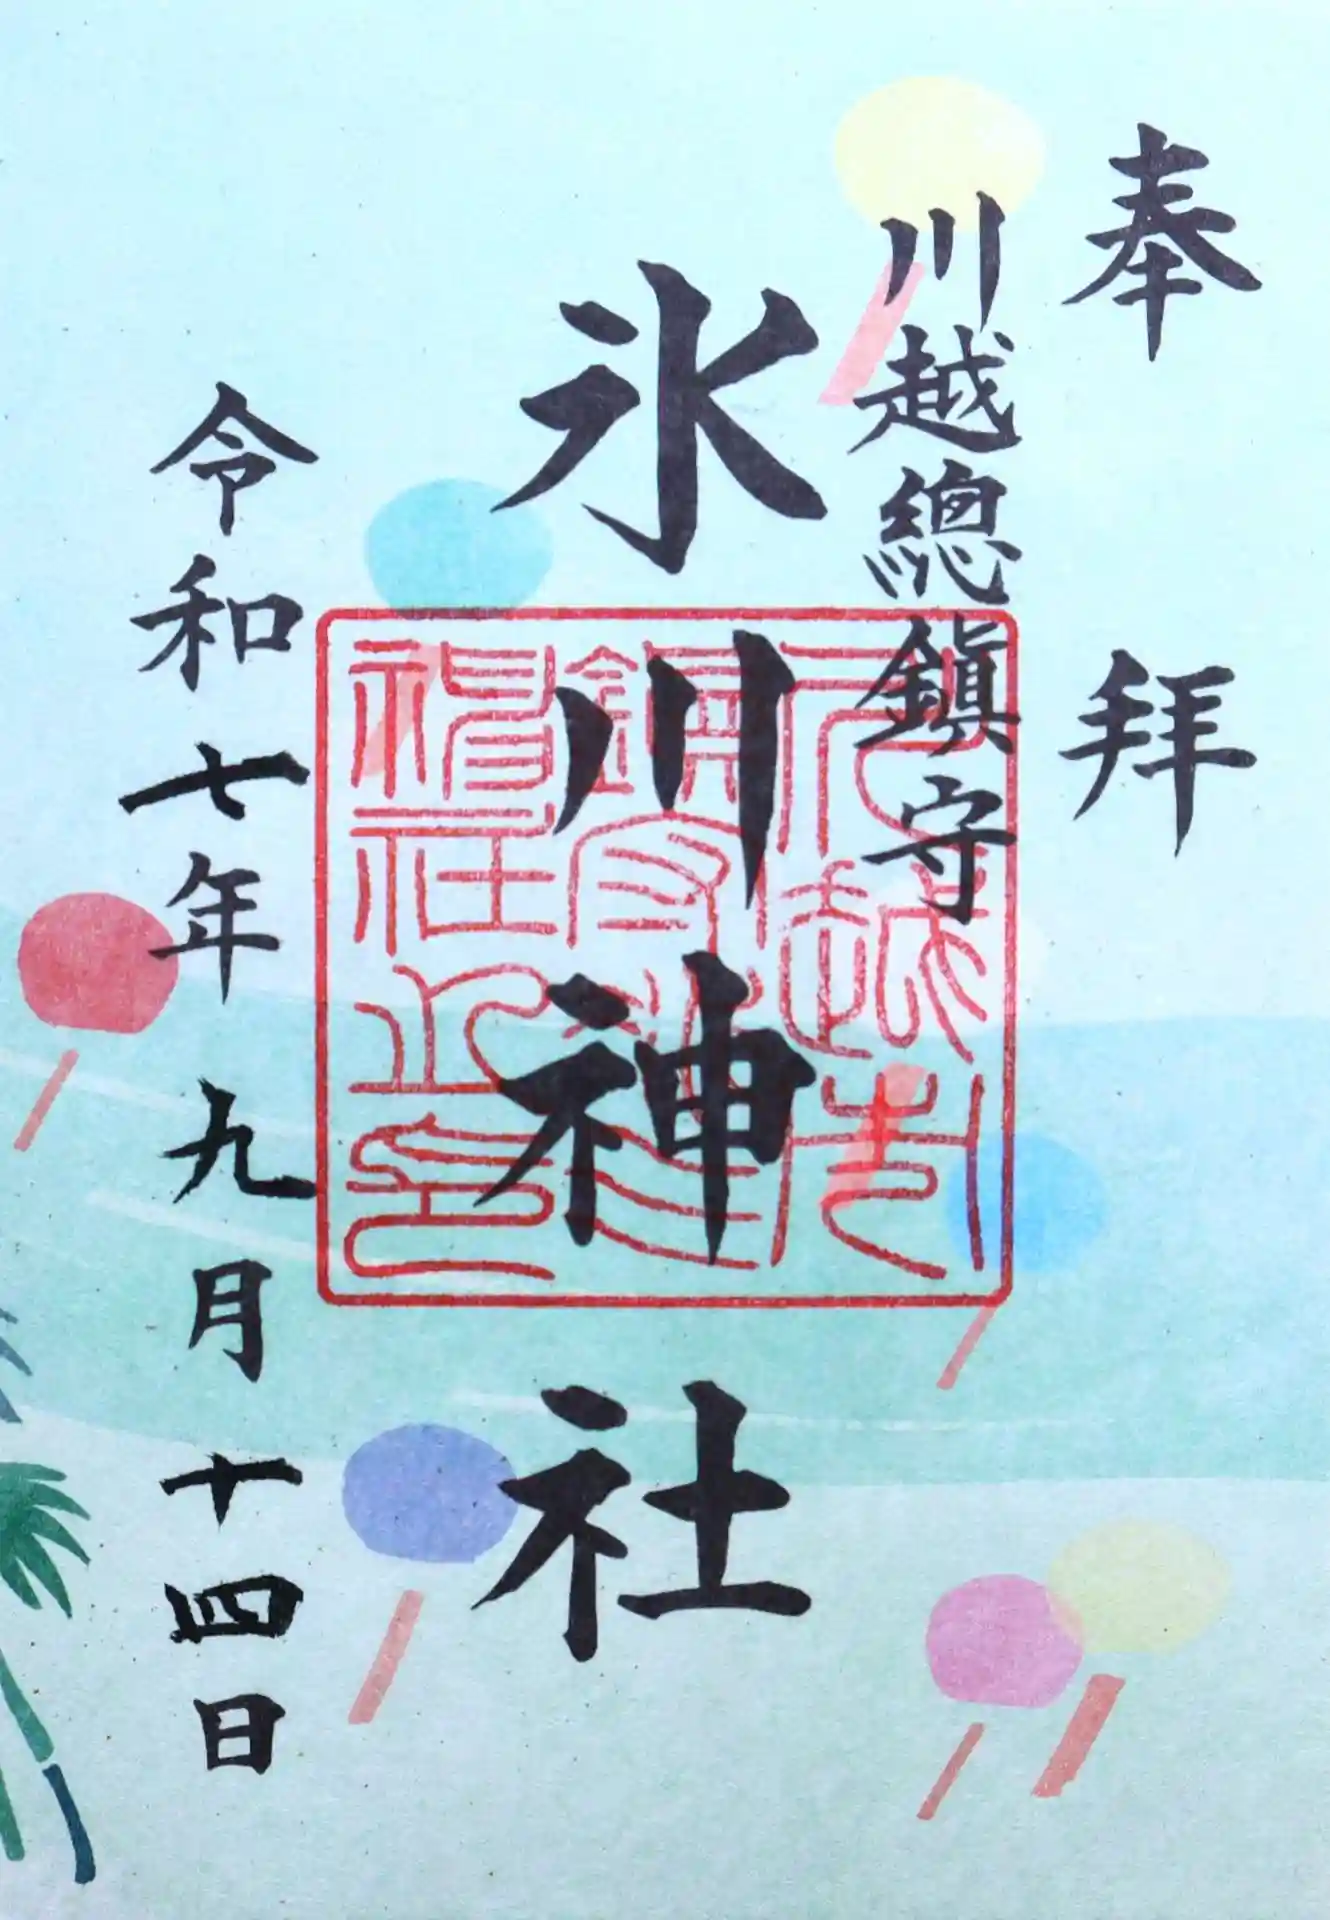 奉拜
川越總鎮守
氷川神社
令和七年九月十四日